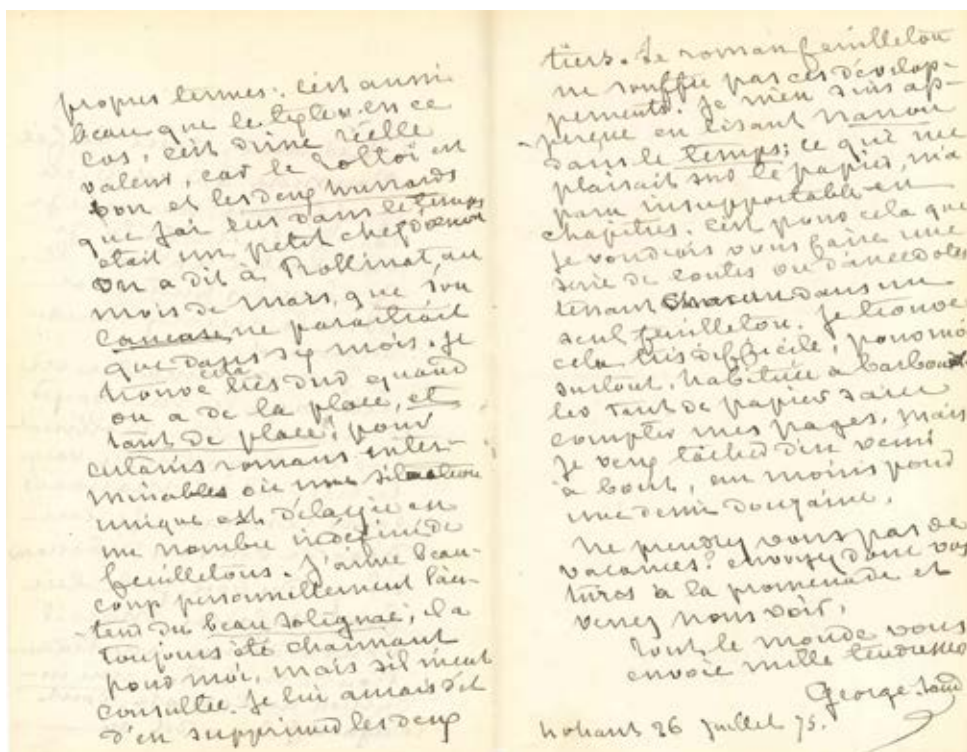 propres termes. C'est aussi
beau que le texte. en ce
cas, c'est d'une réelle
valeur, car le Tolstoï est
bon et les deux hussards
que j'ai lus dans le temps
était un petit chef d'œuvre
On a dit à Rollinat, au
mois de mars, que son
Caucase ne paraîtrait
que dans six mois. Je
trouve cela très dur quand
on a de la place, et
tant de place! pour
certains romans inter-
minables où une situation
unique est délayée en
un nombre indéfini de
feuilletons. J'aime beau-
coup personnellement l'au-
teur du beau Solignac; il a
toujours été charmant
pour moi, mais s'il m'eut
consultée. Je lui aurais dit
d'en supprimer les deux
tiers. Le roman feuilleton
ne souffre pas ces dévelop-
pements. Je m'en suis ap-
perçue en lisant Nanon
dans le temps; ce qui me
plaisait sur le papier, m'a
paru insupportable en
chapitres. C'est pour cela que
je voudrais vous faire une
série de contes ou d'anecdotes
tenant chacun dans un
seul feuilleton. Je trouve
cela très difficile, pour moi
surtout, habituée à barbouil
ler tant de papier sans
compter mes pages, mais
je veux tâcher d'en venir
à bout, au moins pour
une demi douzaine.
Ne prendrez vous pas de
vacances? envoyez donc vos
turcs à la promenade et
venez nous voir,
Tout le monde vous
envoie mille tendresses
George Sand
Nohant 26 Juillet 75.